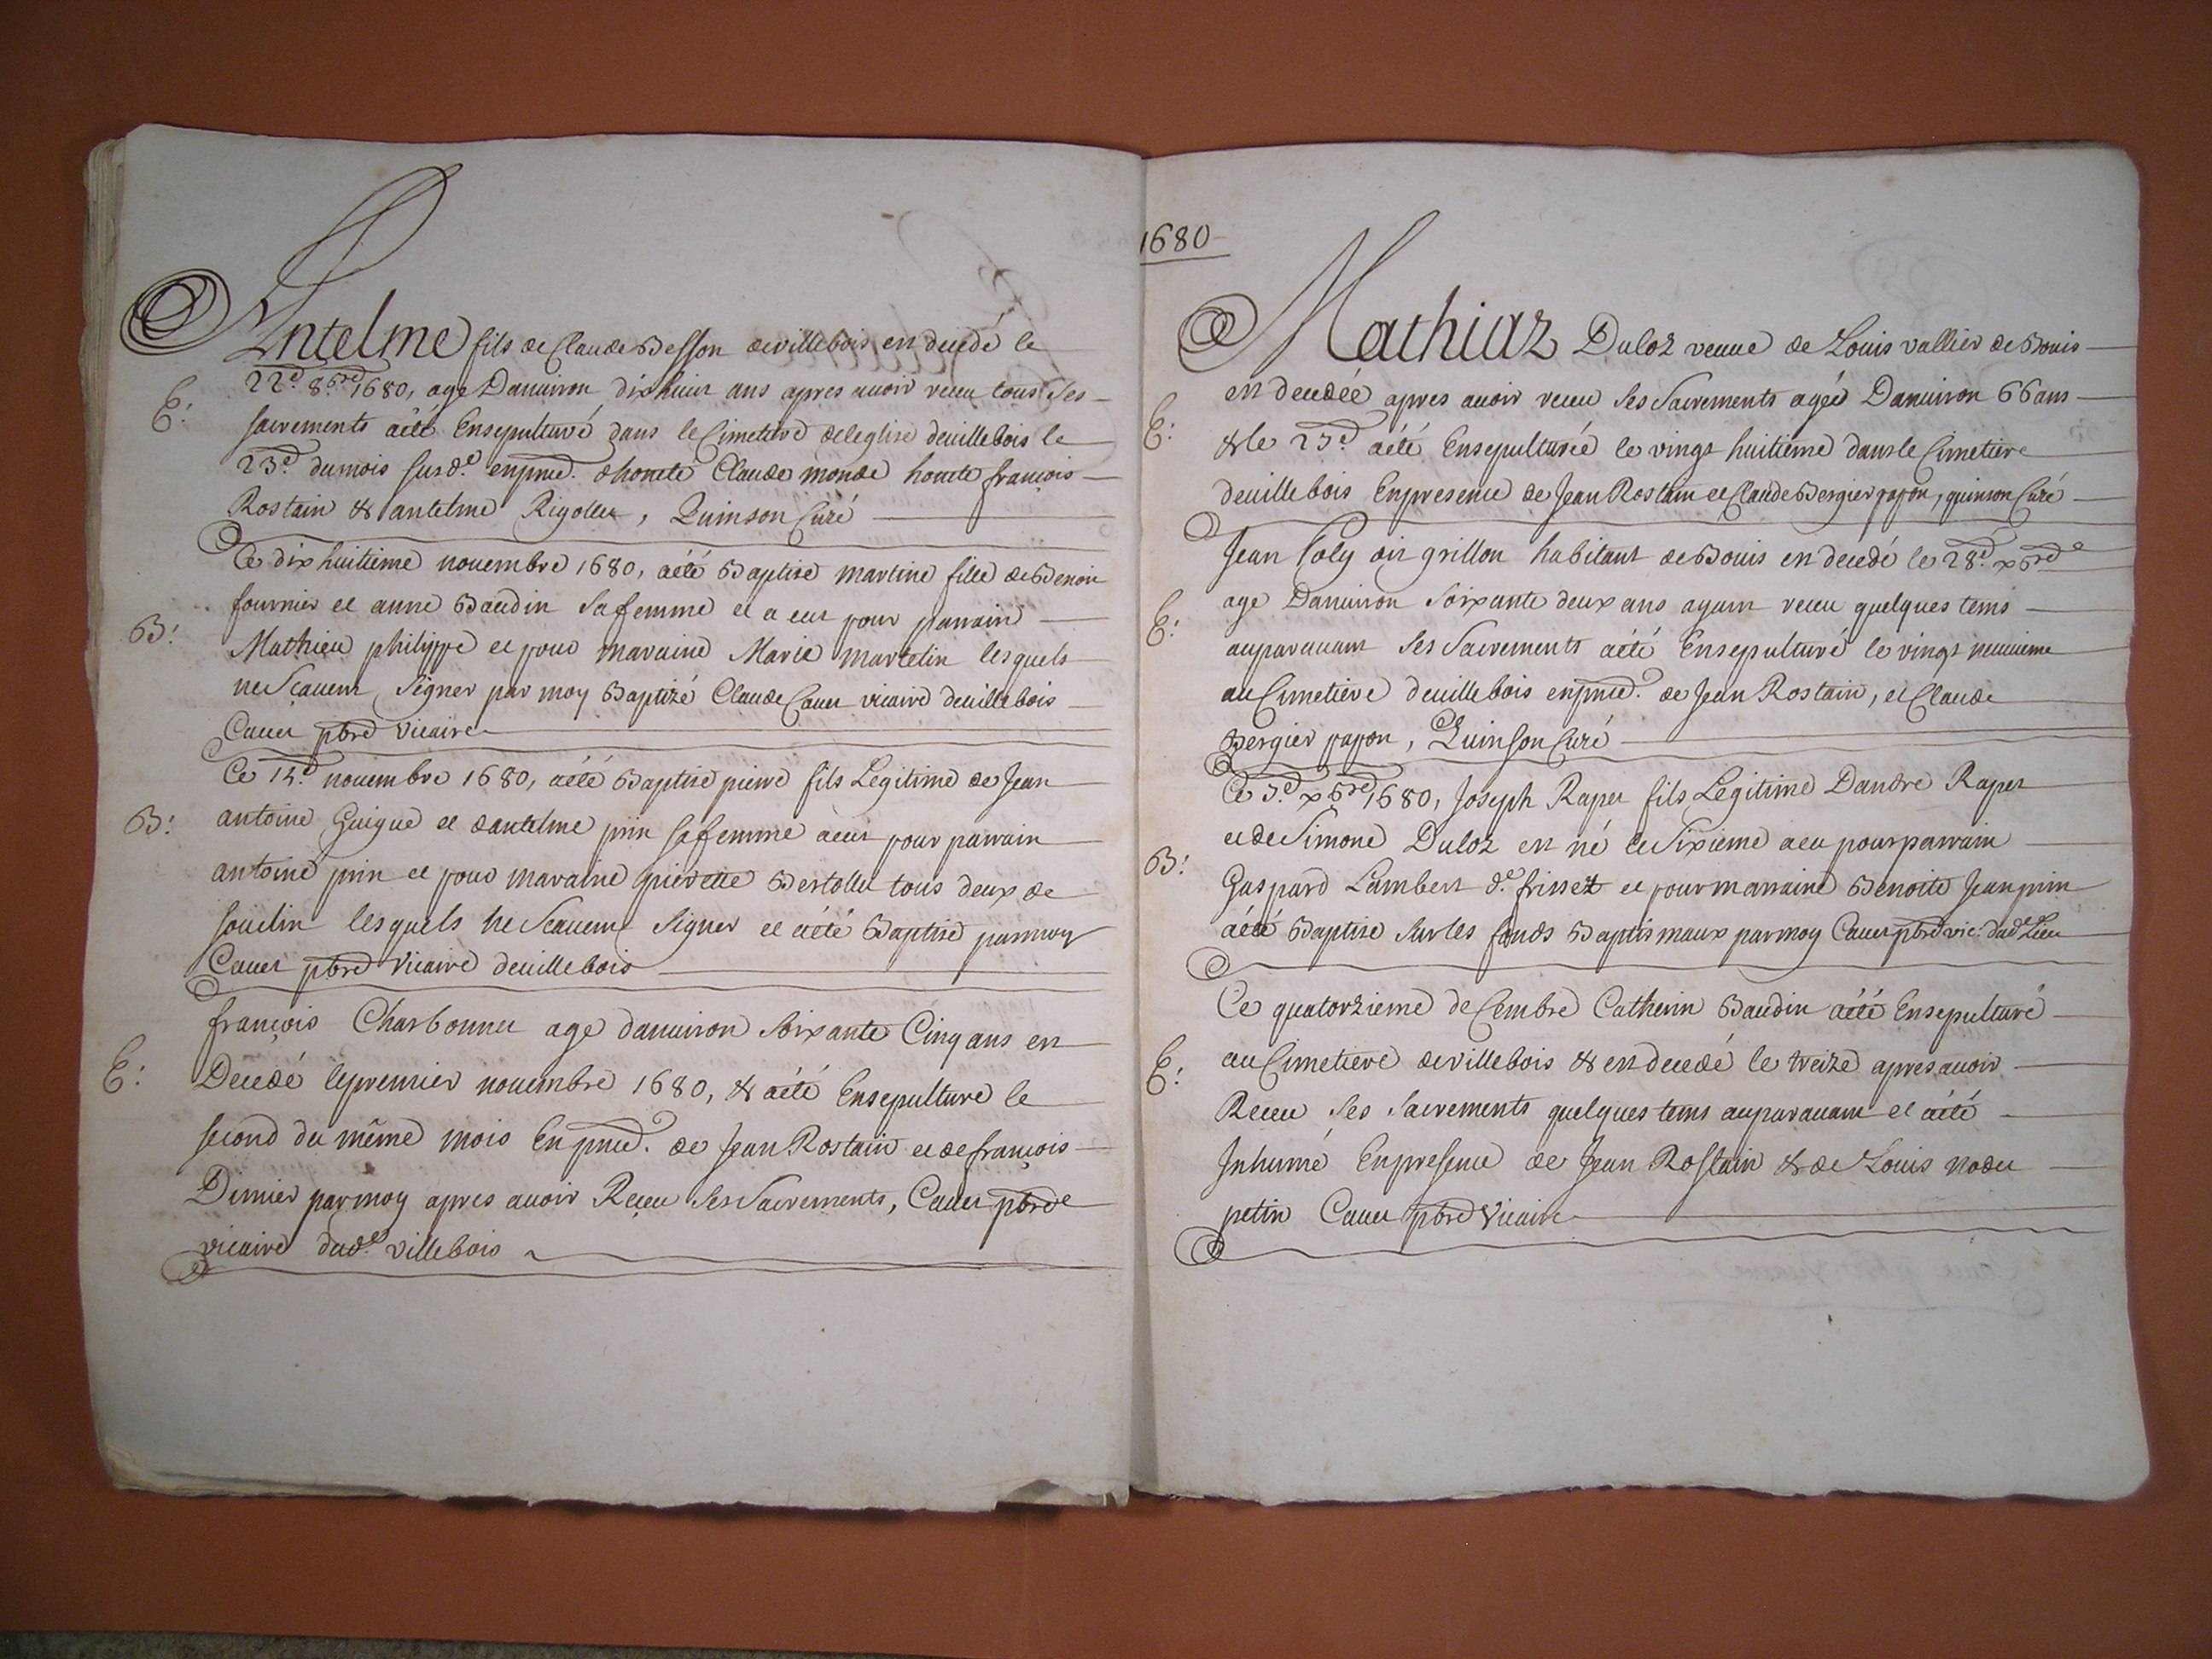 Antelme fils de Claude Besson de villebois en decedé le
22.e 8.bre 1680, age Danuiron dixhuit ans apres auoir receu tous Ses
E:
sacrements aété Ensepulturé dans le Cimetiere deleglise deuillebois le
23.e dumois susd.e enpnce. dhonete Claude monde honete françois
Rostain & antelme Rigollet, Quinson Curé
Ce dixhuitieme nouembre 1680, aété Baptisé martine fille de Benoit
fournier et anne Baudin Safemme et a eut pour parrain
B:
Mathieu philippe et pour maraine Marie martelin lesquels
ne Scauent Signer par moy Baptizé Claude Cauet vicaire deuillebois
Cauet pbre Vicaire
Ce 14.e nouembre 1680, aété Baptise pierre fils Legitime de Jean
B:
antoine Guigue et dantelme prin safemme aeut pour parrain
antoine prin et pour maraine pierette Bertollet tous deux de
soüclin lesquels ne Scauent Signer et aété Baptisé parmoy
Cauet pbre Vicaire deuillebois
françois Charbonnet age danuiron Soixante Cinq ans en
E:
Decedé lepremier nouembre 1680, & aété Ensepulture le
second du même mois En pnce. de Jean Rostain et de françois
Dimier par moy apres auoir Receu Ses Sacrements, Cauet pbre
vicaire dud.e villebois
1680
Mathiaz Duloz veuue de Louis vallier de Bouis
en decedée apres auoir receu Ses Sacrements agée Danuiron 66 ans
E:
& le 27.e aété Ensepulturée le vingt huitieme dans le Cimetiere
deuillebois Enpresence de Jean Rostain et Claude Bergier papon, quinson Curé
Jean Poly dit grillon habitant de Bouis en decedé le 28.e xbre
age Danuiron Soixante deux ans ayant receu quelques tems
E:
auparauant Ses Sacrements aété Ensepulturé le vingt neuuieme
au Cimetiere deuillebois enpnce. de Jean Rostain, et Claude
Bergier papon, Quinson Curé
Ce 7.e xbre 1680, Joseph Rapet fils Legitime Dandre Rapet
et de Simone Duloz en né le Sixieme aeu pour parrain
B:
Gaspard Lambert d.e frisset et pour marraine Benoite Jeanprin
aété Baptise Sur les fonds Baptismaux parmoy Cauet pbre vic: dud.e Lieu
Ce quatorzieme deCembre Catherin Baudin aété Ensepulturé
E:
au Cimetiere de villebois & en decedé le treize apres auoir
Receu Ses Sacrements quelques tems auparauant et aété
Inhumé Enpresence de Jean Rostain & de Louis nodet
petin Cauet pbre Vicaire